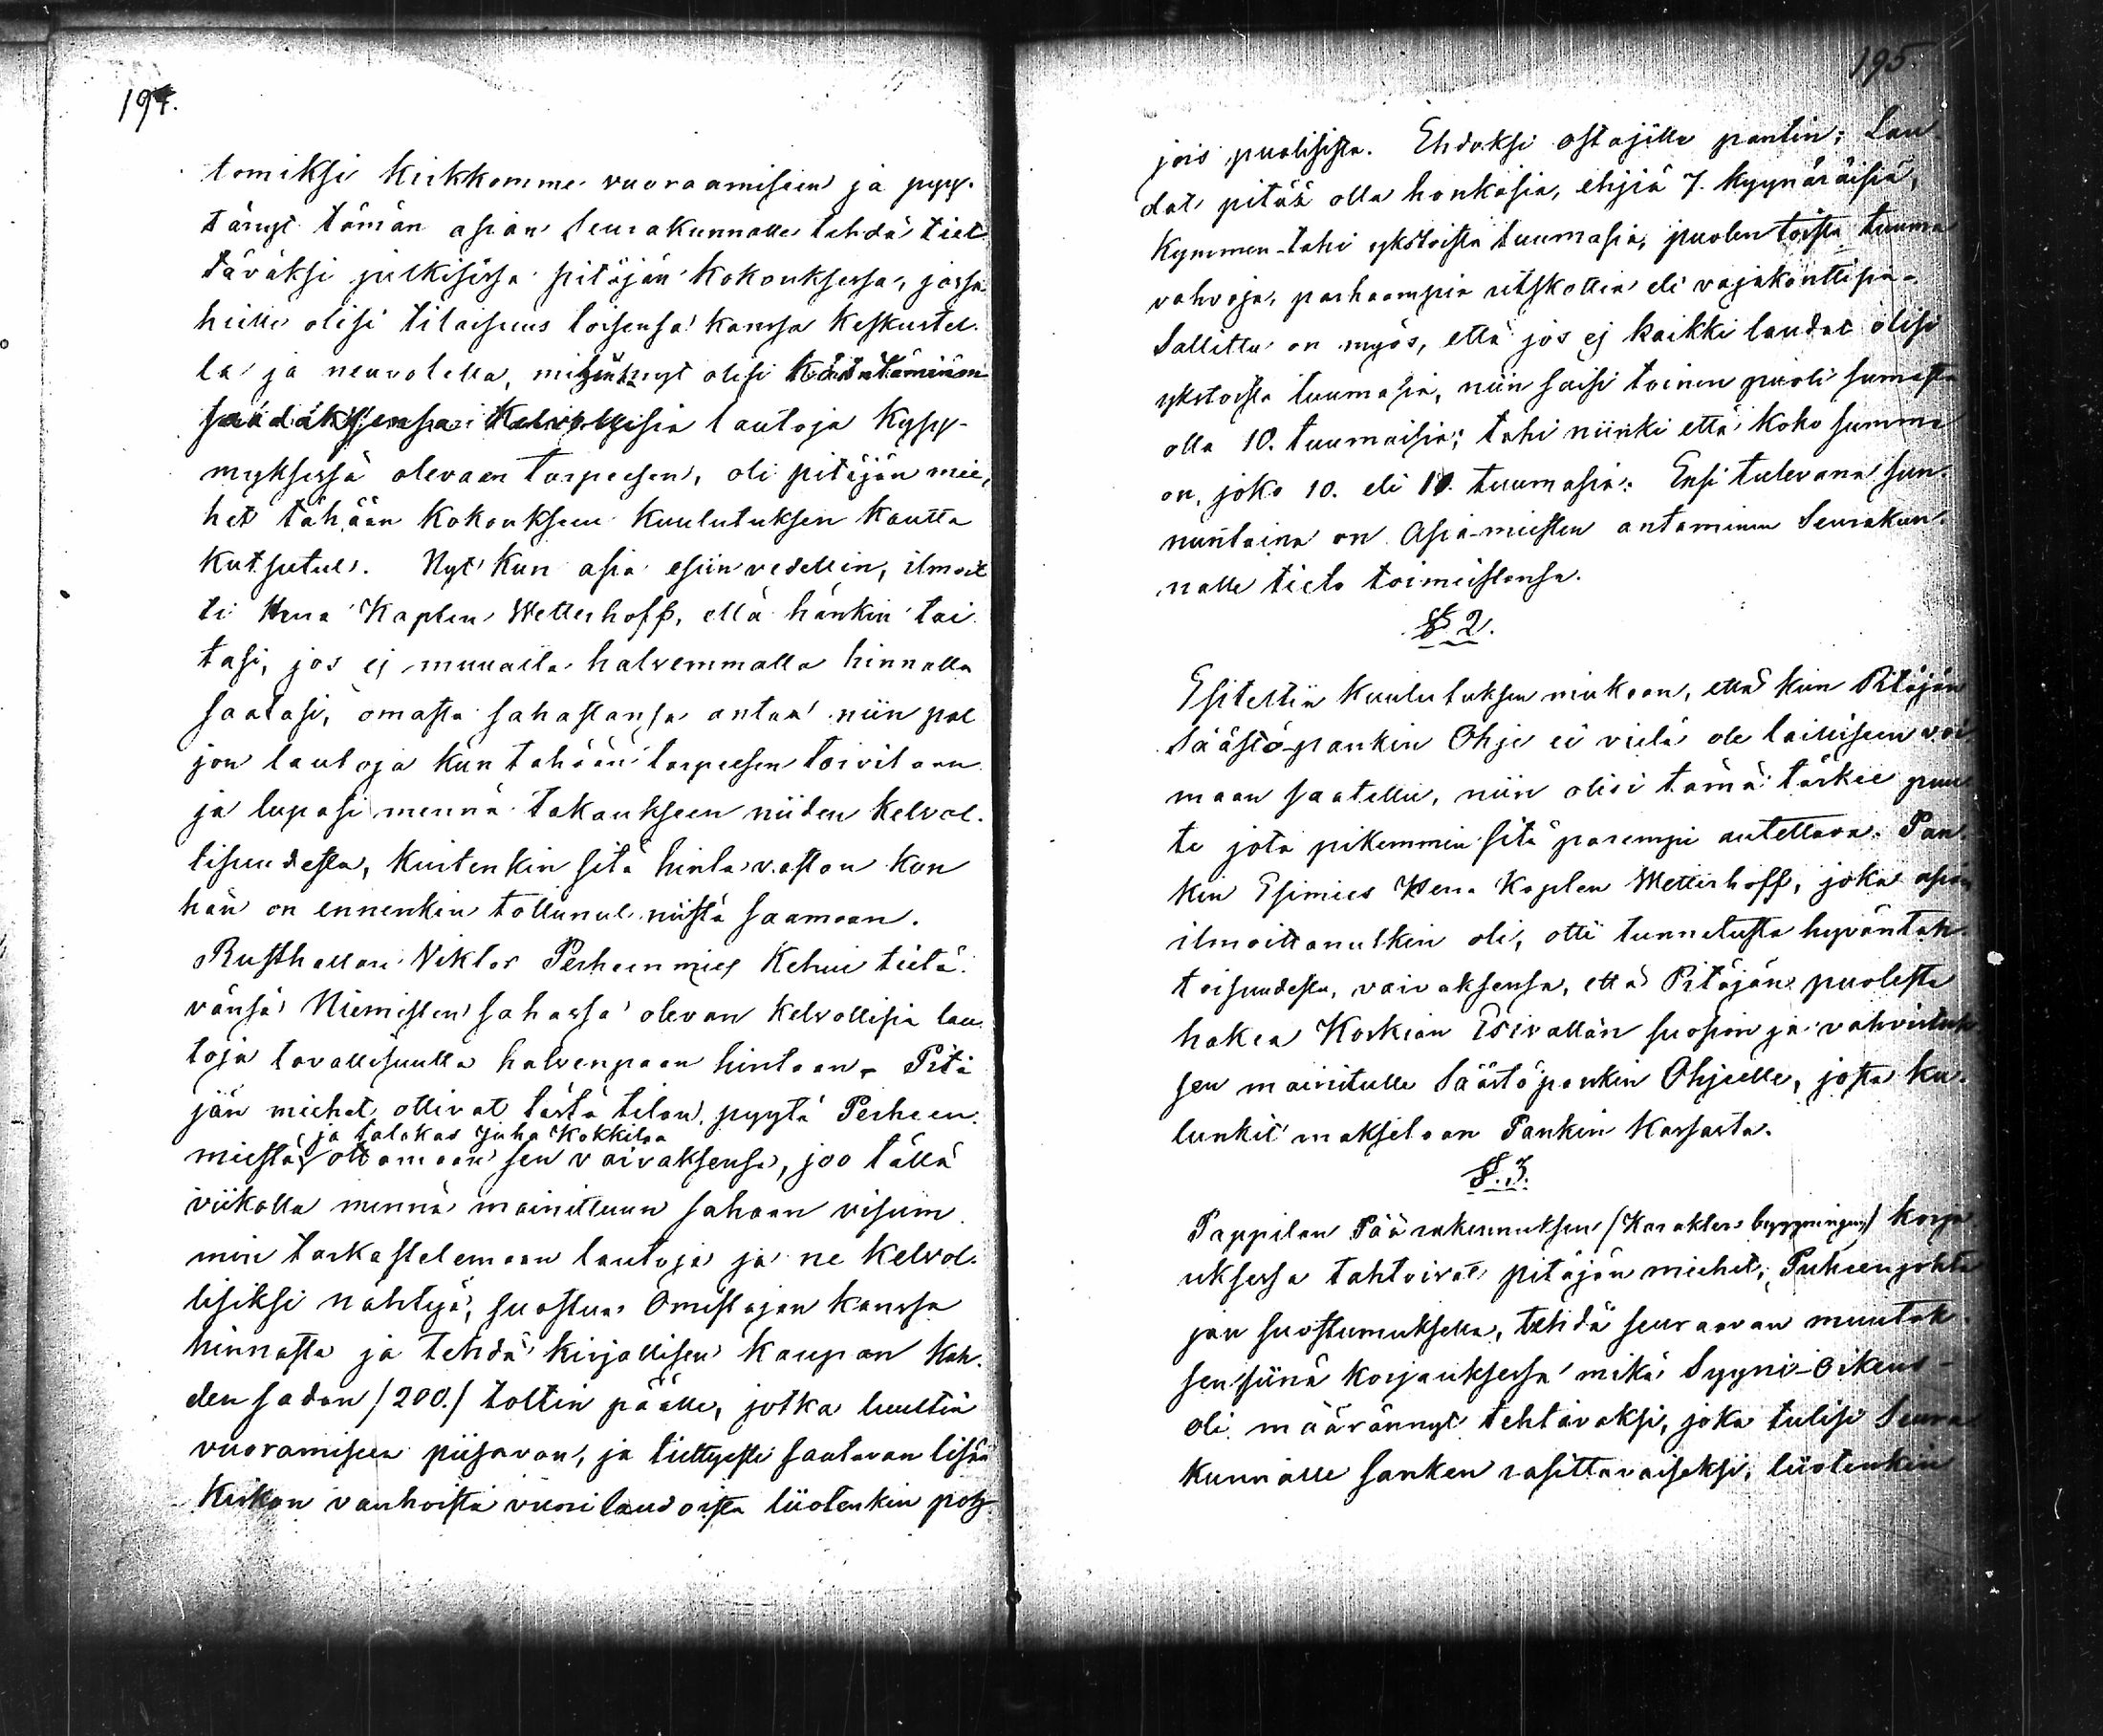 194.
tomiksi kirkkomme vuoraamiseen ja pyy-
tänyt tämän asian Seurakunnalle tehdä tiet-
täväksi julkisessa pitäjän kokouksessa, jossa
heille olisi tilaisuus toisensa kanssa keskustel-
la ja neuvotella, mihin nyt olisi
saadaksensa kelvollisia lautoja kysy-
myksessä olevaan tarpeesen, oli pitäjän mie-
het tähään kokoukseen kuulutuksen kautta
kutsutut. Nyt kun asia esiin vedettiin, ilmoit
ti Herra Kapten Wetterhoff, että hänkin tai
tasi, jos ej muualta halvemmalla hinnalla
saatasi, omasta sahastansa antaa niin pal
jon lautoja kun tähään tarpeesen tarvitaan
ja lupasi mennä takaukseen niiden kelvol-
lisuudesta, kuitenkin sitä hinta vastan kun
hän on ennenkin tottunut niistä saamaan.
Rusthollari Viktor Perheenmies Kehui tietä-
vänsä Niemisten sahassa olevan kelvollisia lau-
toja tavallisuutta halvenpaan hintaan. Pitä
jän miehet ottivat tästä tilan pyytä Perheen-
ja talokas Juha Kokkilaa
miestä ottamaan sen vaivaksensa, joo tällä
viikolla mennä mainittuun sahaan visum
min tarkastelemaan lautoja ja ne kelvol-
lisiksi nähtyä, suostua Omistajan kanssa
hinnasta ja tehdä kirjallisen kaupan kah-
den sadan /200./ toltin päälle, jotka luultiin
vuoramiseen piisavan, ja tiettyesti saatavan lisää
Kirkon vanhoista vuorilaudoista liiotenkin poh-
195.
jois puolisista. Ehdoksi ostajille pantiin: Lau-
dat pitää olla honkasia, ehjiä 7. kyynäräisiä,
kymmen- tahi ykstoista tuumasia, puolen toista tuuma
vahvoja, parhaampia utskottia eli vajakonttisia.
Sallittu on myös, että jos ej kaikki laudat olisi
ykstoista tuumasia, niin saisi toinen puoli summasta
olla 10. tuumaisia; tahi niinki että koko summa
on, joko 10. eli 11. tuumasia. Ensi tulevana sun-
nuntaina on Asia-miesten antaminen Seurakun-
nalle tieto toimistansa.
§ 2.
Esitettiin kuulutuksen mukaan, että kun Pitäjän
Säästö-pankin Ohje ei vielä ole lailliseen voi-
maan saatettu, niin olisi tämä tärkee puu-
te jota pikemmin sitä parempi autettava. Pan-
kin Esimies Herra Kapten Wetterhoff, joka asian
ilmoittanutkin oli, otti tunnetusta hyväntah-
toisuudesta, vaivaksensa, että Pitäjän puolesta
hakea Korkian Esivallan suosion ja vahvistuk-
sen mainitulle Säästöpankin Ohjeelle, josta ku-
lunkit maksetaan Pankin kassasta.
§. 3.
Pappilan Päärakennuksen /Karakters byggningen/ korja-
uksessa tahtoivat pitäjän miehet, Puheenjohta
jan suostumuksella, tehdä seuraavan muutok-
sen siinä korjauksessa mikä Syyni-Oikeus
oli määrännyt tehtäväksi, joka tulisi Seura
kunnalle sanken rasittavaiseksi, liiotenkin